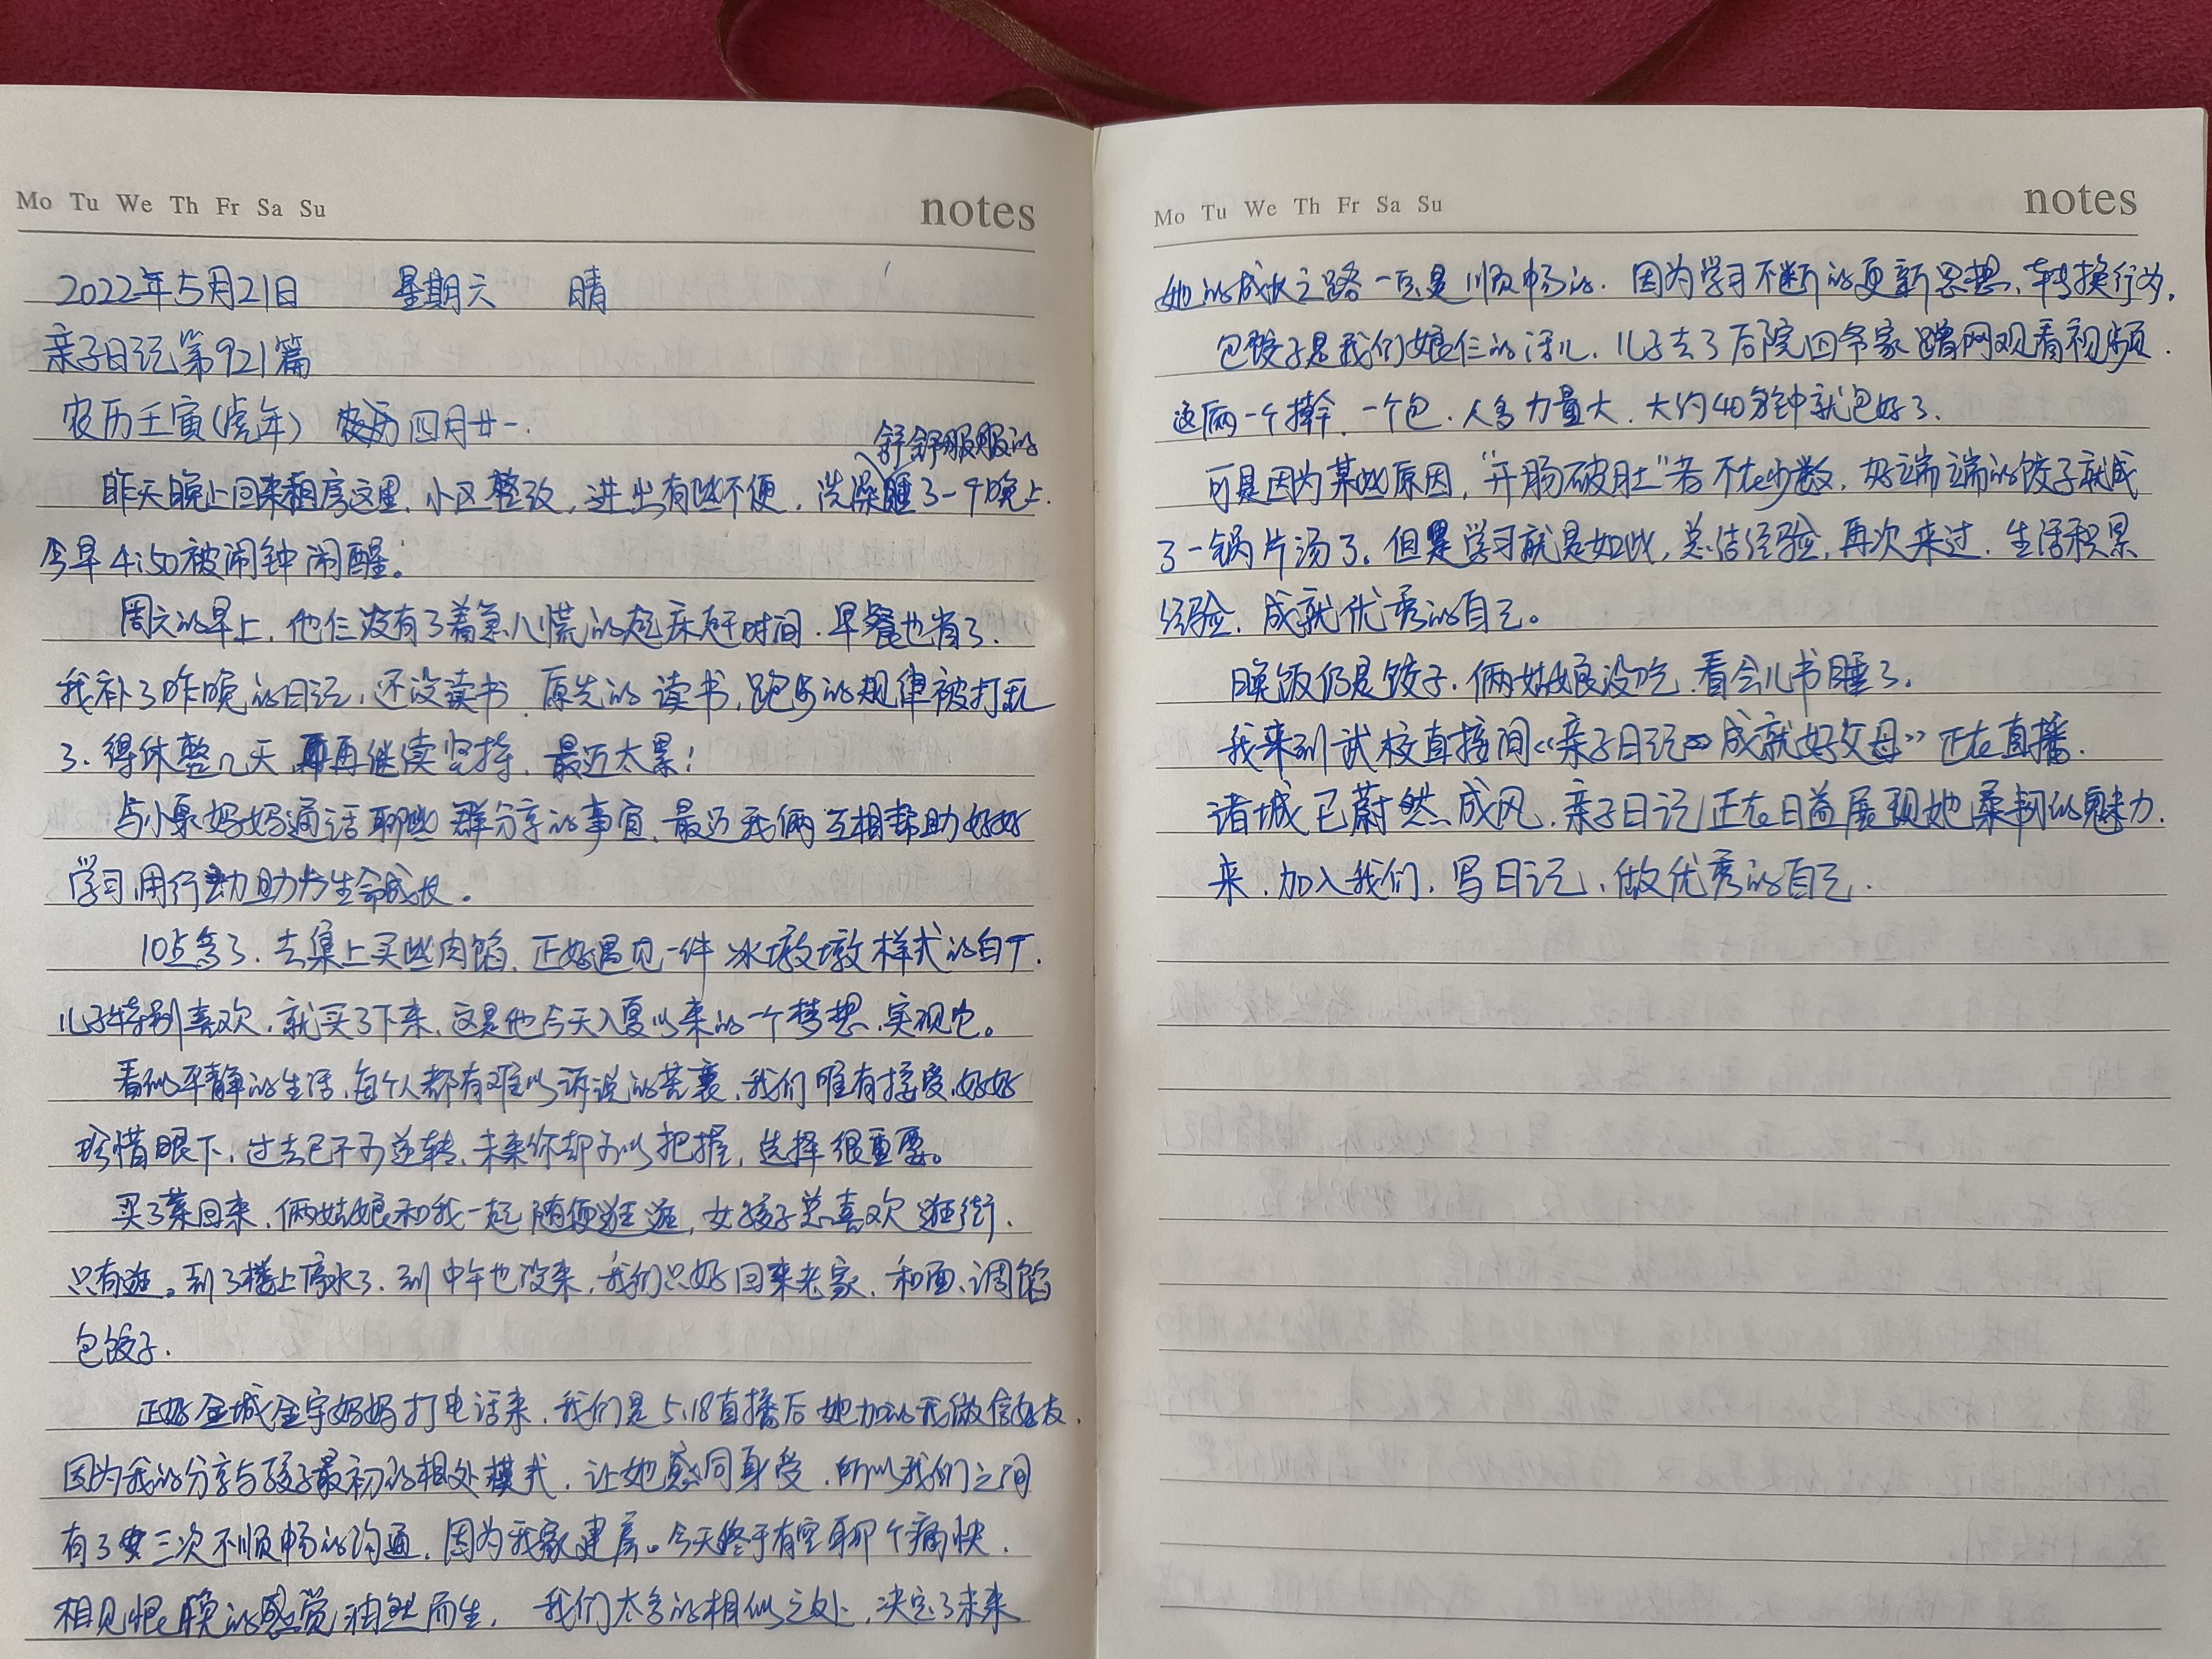 Mo Tu We Th Fr Sa Su notes
2022年5月21日 星期六 晴
亲子日记第921篇
农历壬寅(虎年) 农历四月廿一.
舒舒服服的
昨天晚上回来租房这里.小区整改,进出有些不便,洗澡睡了一个晚上.
今早4:50被闹钟闹醒.
周六的早上,他仨没有了着急心慌的起床赶时间.早餐也省了.
我补了昨晚的日记,还没读书.原先的读书,跑步的规律被打乱
了.得休整几天,再继续坚持,最近太累!
与小果妈妈通话聊些群分享的事宜.最近我俩互相帮助好好
学习用行动助力生命成长。
10点多了.去集上买些肉馅.正好遇见一件冰墩墩样式的白T.
儿子特别喜欢,就买了下来,这是他今天入夏以来的一个梦想,实现它。
看似平静的生活,每个人都有难以诉说的苦衷,我们唯有接受,好好
珍惜眼下,过去已不可逆转,未来你却可以把握,选择很重要。
买了菜回来,俩姑娘和我一起随便逛逛,女孩子总喜欢逛街.
只有逛。到了楼上停水了.到中午也没来,我们只好回来老家.和面、调馅
包饺子.
正好金城金宇妈妈打电话来,我们是5.18直播后她加的我微信好友.
因为我的分享与孩子最初的相处模式,让她感同身受.所以我们之间
有了三次不顺畅的沟通,因为我家建房。今天终于有空聊个痛快.
相见恨晚的感觉油然而生. 我们太多的相似之处,决定了未来
Mo Tu We Th Fr Sa Su notes
她的成长之路一定是顺畅的.因为学习不断的更新思想,转换行为.
包饺子是我们娘仨的活儿.儿子去了后院四爷家蹭网观看视频.
这俩一个擀,一个包.人多力量大.大约40分钟就包好了.
可是因为某些原因,"开肠破肚"者不在少数,好端端的饺子就成
了一锅片汤了.但是学习就是如此,总结经验,再次来过.生活积累
经验,成就优秀的自己。
晚饭仍是饺子.俩姑娘没吃.看会儿书睡了.
我来到试校直接间《亲子日记 成就好父母》正在直播.
诸城已蔚然成风.亲子日记正在日益展现她柔韧的魅力.
来,加入我们,写日记,做优秀的自己.